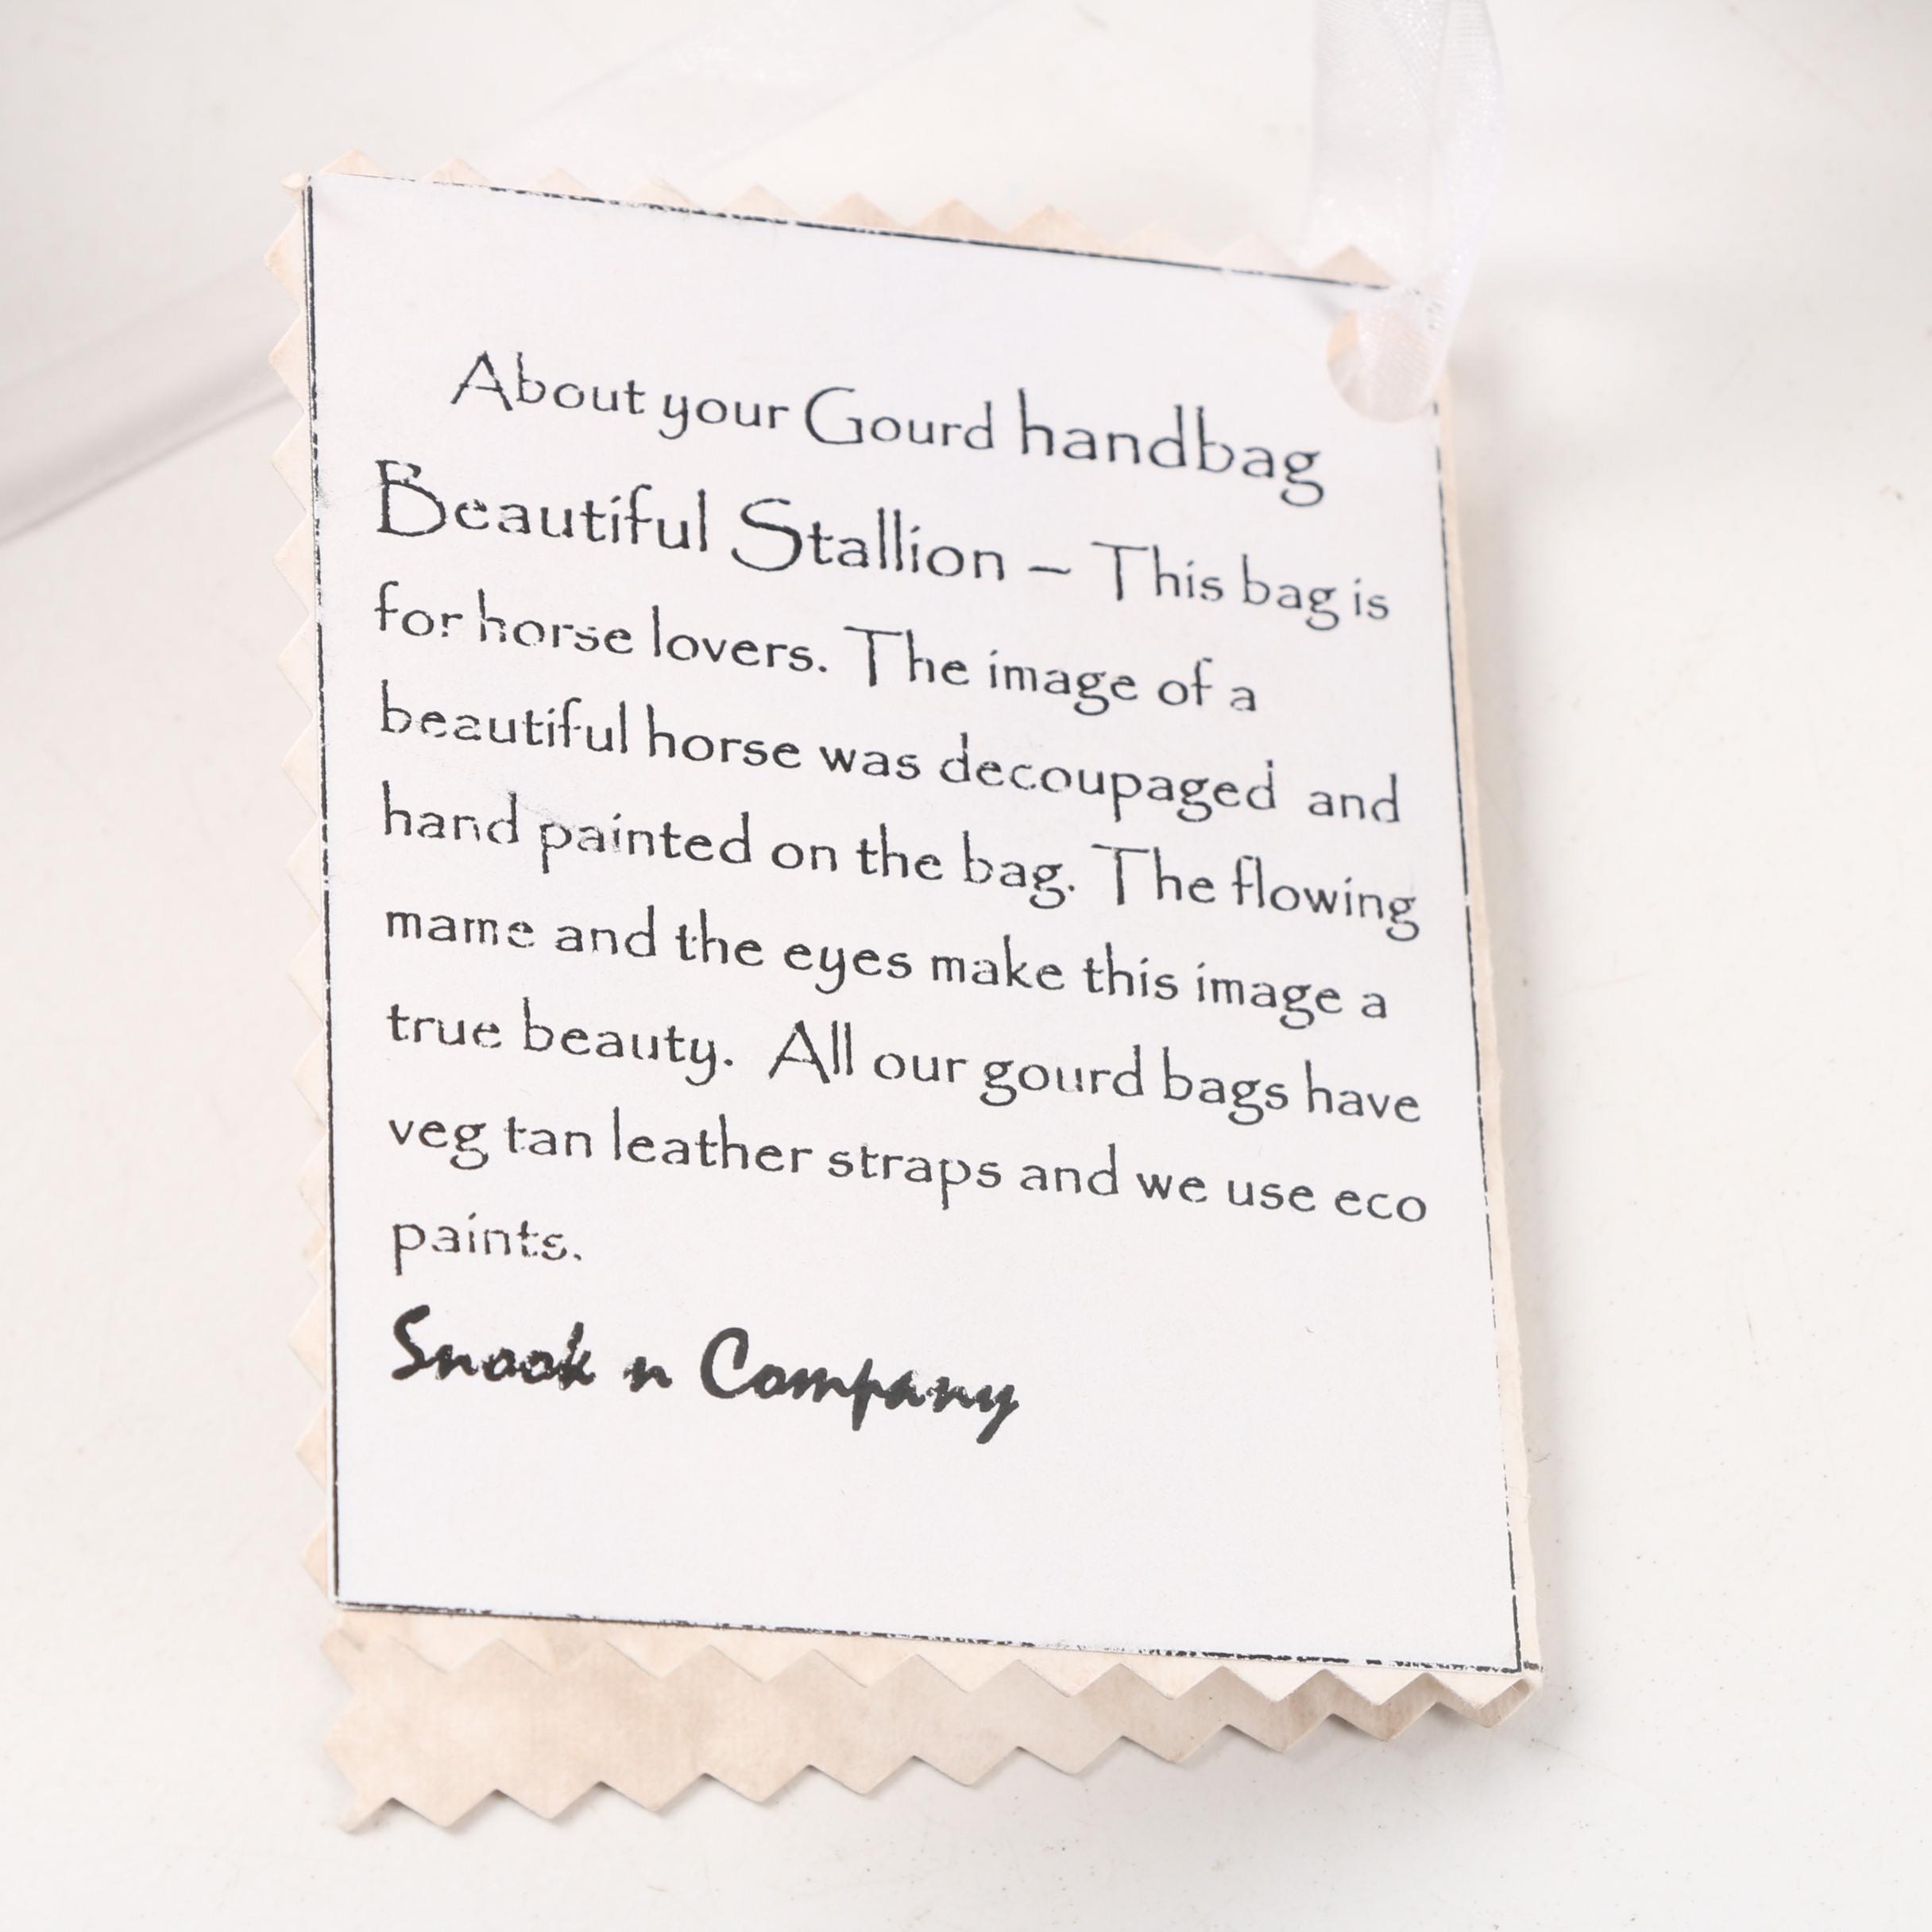 About your Gourd handbag
Beautiful Stallion – This bag is
for horse lovers. The image of a
beautiful horse was decoupaged and
hand painted on the bag. The flowing
mame and the eyes make this image a
true beauty. All our gourd bags have
veg tan leather straps and we use eco
paints.
Snook n Company